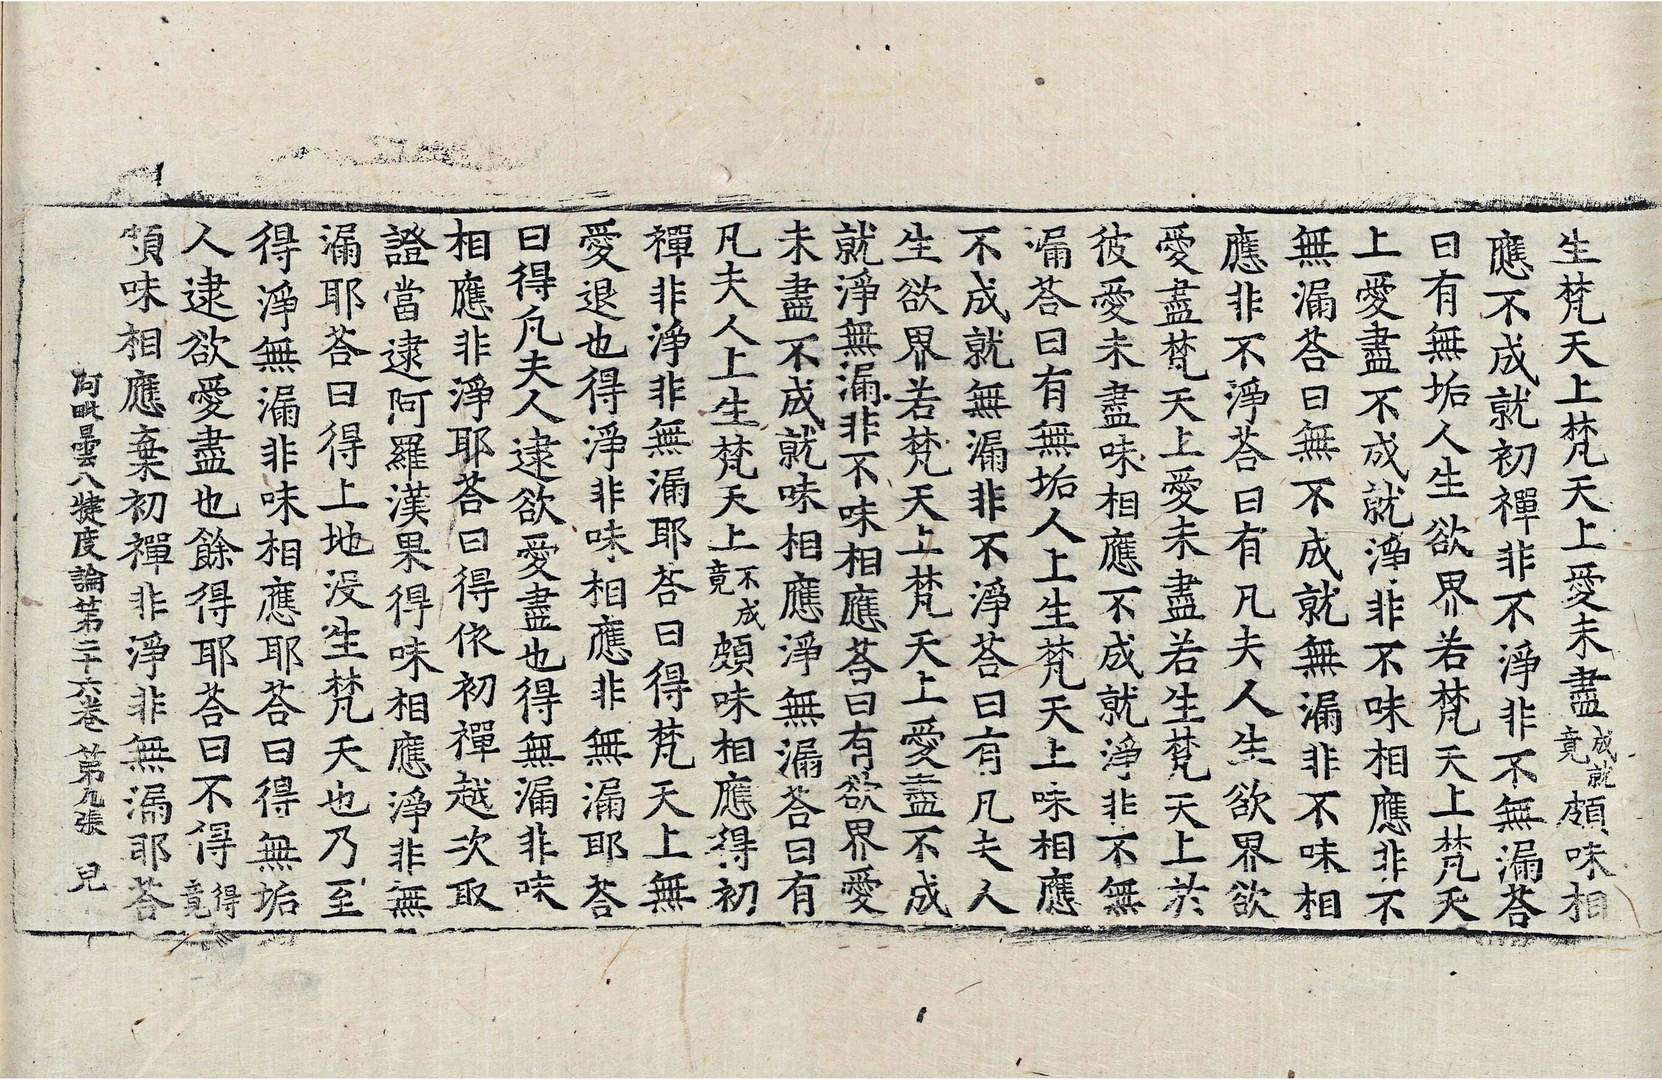 生梵天上梵天上愛未盡成就竟頗味相
應不成就初禪非不淨非不無漏荅
曰有無垢人生欲界若梵天上梵天
上愛盡不成就淨非不味相應非不
無漏荅曰無不成就無漏非不味相
應非不淨荅曰有凡夫人生欲界欲
愛盡梵天上愛未盡若生梵天上於
彼愛未盡味相應不成就淨非不無
漏荅曰有無垢人上生梵天上味相應
不成就無漏非不淨荅曰有凡夫人
生欲界若梵天上梵天上愛盡不成
就淨無漏非不味相應荅曰有欲界愛
未盡不成就味相應淨無漏荅曰有
凡夫人上生梵天上不成竟頗味相應得初
禪非淨非無漏耶荅曰得梵天上無
愛退也得淨非味相應非無漏耶荅
曰得凡夫人逮欲愛盡也得無漏非味
相應非淨耶荅曰得依初禪越次取
證當逮阿羅漢果得味相應淨非無
漏耶荅曰得上地沒生梵天也乃至
得淨無漏非味相應耶荅曰得無垢
人逮欲愛盡也餘得耶荅曰不得得竟
頗味相應棄初禪非淨非無漏耶荅
阿毗曇八犍度論第二十六卷 第九張 皃